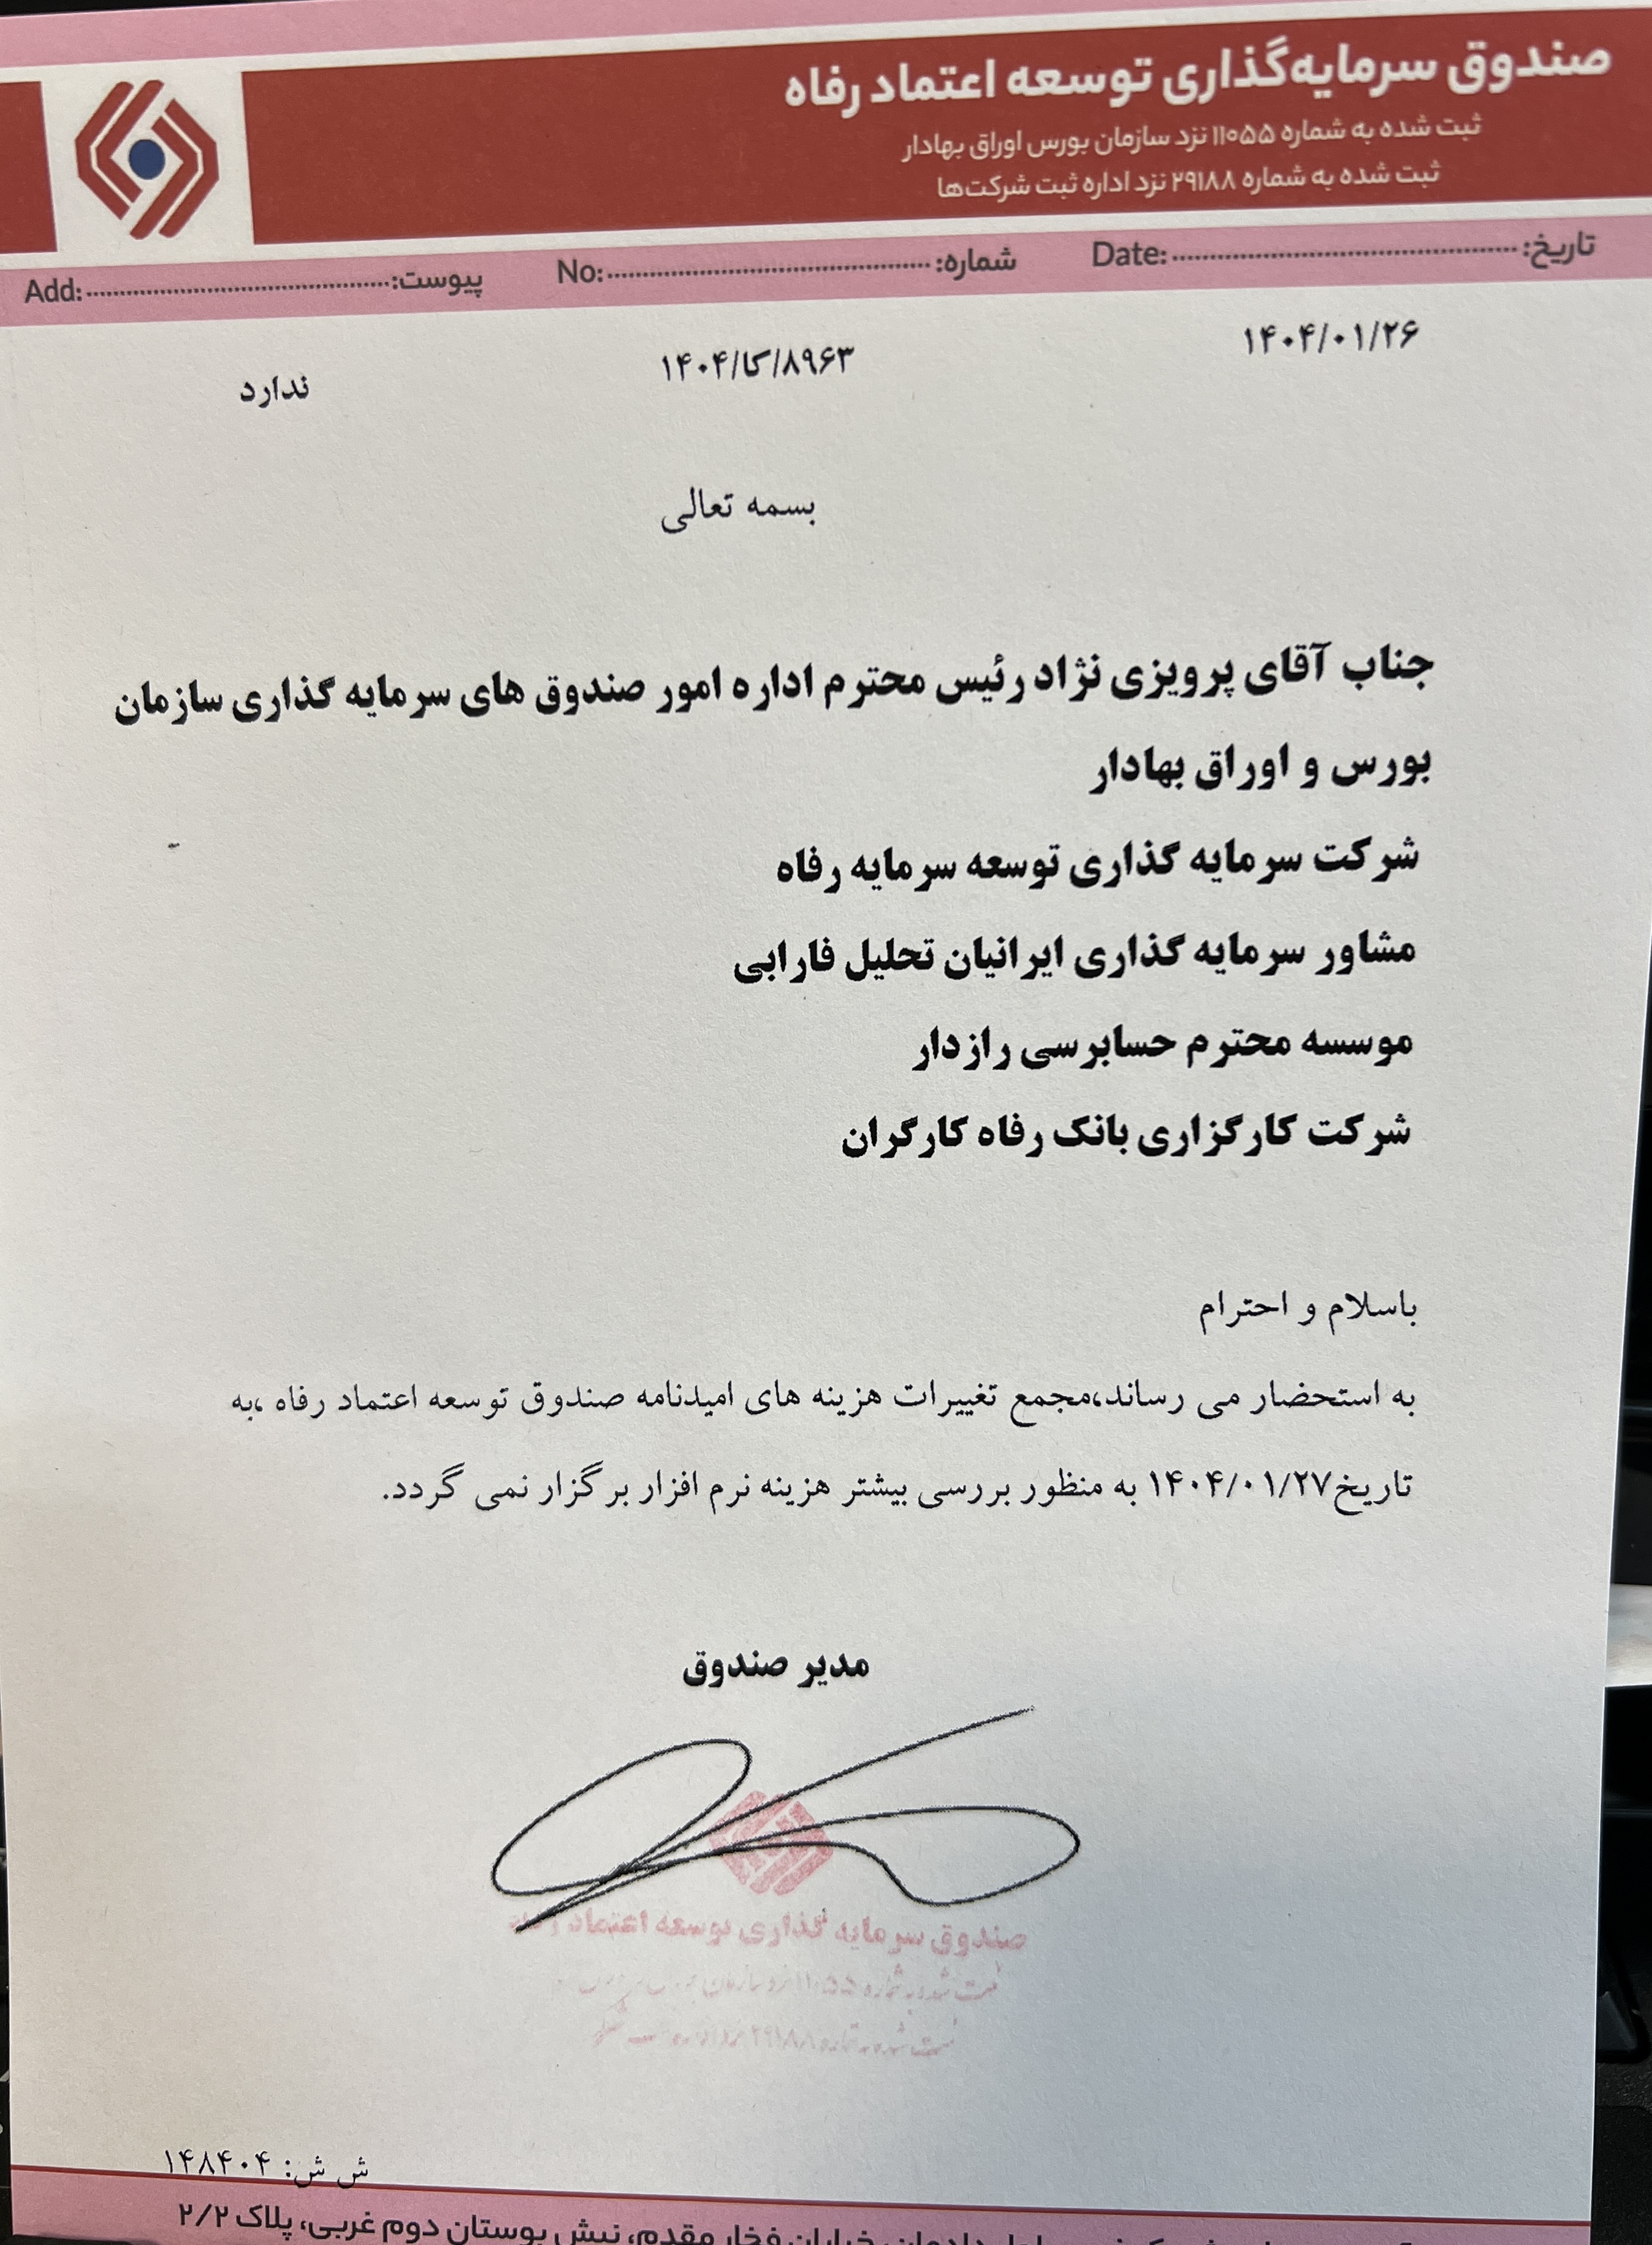 صندوق سرمایه‌گذاری توسعه اعتماد رفاه
ثبت شده به شماره ۱۱۰۵۵ نزد سازمان بورس اوراق بهادار
ثبت شده به شماره ۲۹۱۸۸ نزد اداره ثبت شرکت‌ها
تاریخ: Date: شماره: No: پیوست: Add:
۱۴۰۴/۰۱/۲۶ ۱۴۰۴/کا/۸۹۶۳ ندارد
بسمه تعالی
جناب آقای پرویزی نژاد رئیس محترم اداره امور صندوق های سرمایه گذاری سازمان
بورس و اوراق بهادار
شرکت سرمایه گذاری توسعه سرمایه رفاه
مشاور سرمایه گذاری ایرانیان تحلیل فارابی
موسسه محترم حسابرسی رازدار
شرکت کارگزاری بانک رفاه کارگران
باسلام و احترام
به استحضار می رساند،مجمع تغییرات هزینه های امیدنامه صندوق توسعه اعتماد رفاه ،به
تاریخ۱۴۰۴/۰۱/۲۷ به منظور بررسی بیشتر هزینه نرم افزار برگزار نمی گردد.
مدیر صندوق
صندوق سرمایه گذاری توسعه اعتماد
ثبت شده به شماره ۱۱۰۵۵ نزد سازمان
ثبت شده به شماره ۲۹۱۸۸ نزد اداره
ش ش: ۱۴۸۴۰۴
دادمان، خیابان فخار مقدم، نبش بوستان دوم غربی، پلاک ۲/۲